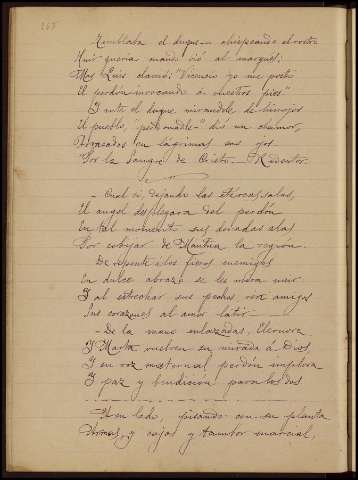 Temblaba el duque — chispeando el rostro
Huir queria mando vió al marques;
Mas Luis clamó: "Vicencio yo me postro
El perdón invocando á vuestros pies"
Y ante el duque mirandole de hinojos
El pueblo, "perdonadle" dió un clamor,
Arrasados en lágrimas sus ojos.
"Por la Sangre de Cristo — Redentor.
— Cual si, dejando las etéreas salas,
El angel desplegara del perdón
En tal momento sus doradas alas
Por cobijar de Mantua la region.
De repente á los fieros enemigos
En dulce abrazo se les mira unir
Y al estrechar sus pechos ven amigos
Sus corazones al amor latir. —
— De la mano enlazadas, Eleonora
Y Marta vuelven su mirada á Dios,
Y en voz maternal perdón implora
Y paz y bendicion para los dos
— Y en lado, pisando con su planta
Armas, y cajas y tambor marcial,